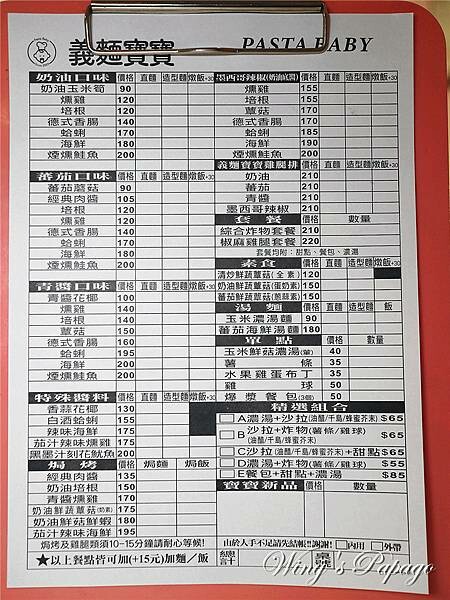 義麵寶寶 PASTA BABY
奶油口味 價格 直麵 造型麵 燉飯+30
奶油玉米筍 90
燻雞 120
培根 120
德式香腸 140
蛤蜊 170
海鮮 180
煙燻鮭魚 200
蕃茄口味 價格 直麵 造型麵 燉飯+30
蕃茄蘑菇 90
經典肉醬 105
培根 120
燻雞 120
德式香腸 140
蛤蜊 170
海鮮 180
煙燻鮭魚 200
青醬口味 價格 直麵 造型麵 燉飯+30
青醬花椰 100
燻雞 140
培根 140
蕈菇 150
德式香腸 160
蛤蜊 195
海鮮 195
煙燻鮭魚 220
特殊醬料 價格 直麵 造型麵 燉飯+30
香蒜花椰 130
白酒蛤蜊 155
辣味海鮮 175
茄汁辣味燻雞 175
黑墨汁刻花魷魚 200
焗烤 價格 焗麵 焗飯
經典肉醬 135
奶油培根 150
青醬燻雞 170
奶油鮮蔬蕈菇(奶素) 175
奶油鮮菇鮮蝦 180
茄汁辣味海鮮 195
焗烤及雞腿類須10-15分鐘請耐心等候!
★以上餐點皆可加(+15元)加麵／飯
墨西哥辣椒(奶油底醬) 價格 直麵 造型麵 燉飯+30
燻雞 155
培根 155
蕈菇 170
德式香腸 170
蛤蜊 185
海鮮 190
煙燻鮭魚 200
義麵寶寶雞腿排 價格 直麵 造型麵 燉飯+30
奶油 210
蕃茄 210
青醬 210
墨西哥辣椒 210
套餐 價格 數量
綜合炸物套餐 200
椒麻雞腿套餐 220
套餐均附：甜點、餐包、濃湯
素食 價格 直麵 造型麵 燉飯+30
清炒鮮蔬蕈菇(全素) 120
奶油鮮蔬蕈菇(蛋奶素) 150
蕃茄鮮蔬蕈菇(蔥蒜素) 150
湯麵 價格 直麵 造型麵 飯
玉米濃湯麵 90
蕃茄海鮮湯麵 180
單點 價格 數量
玉米鮮菇濃湯(葷) 40
薯條 35
水果雞蛋布丁 35
雞球 50
爆漿餐包(3個) 50
精選組合
A濃湯+沙拉(油醋/千島/蜂蜜芥末) $65
B沙拉+炸物(薯條/雞球) $65
(油醋/千島/蜂蜜芥末)
C沙拉(油醋/千島/蜂蜜芥末)+甜點 $65
D濃湯+炸物(薯條/雞球) $55
E餐包+甜點+濃湯 $85
寶寶新品 價格 數量
由於人手不足請先結帳!!謝謝! 內用 外帶
總計 桌號
Wing's Papago